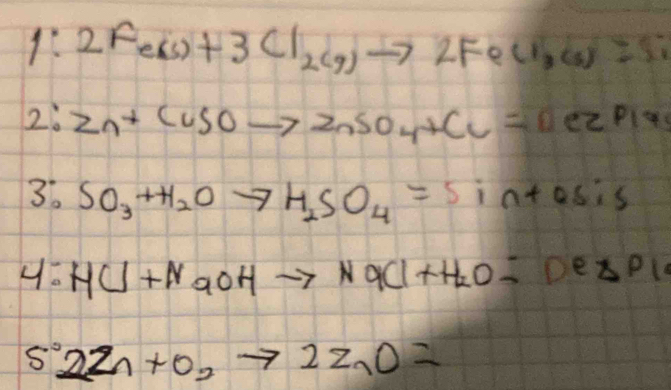 1: 2Fe(s) + 3Cl2(g) → 2FeCl3(s) = Si
2: Zn + CuSO → ZnSO4 + Cu = Dezplas
3: SO3 + H2O → H2SO4 = Sintesis
4: HCl + NaOH → NaCl + H2O = Dezpla
5: 2Zn + O2 → 2ZnO =